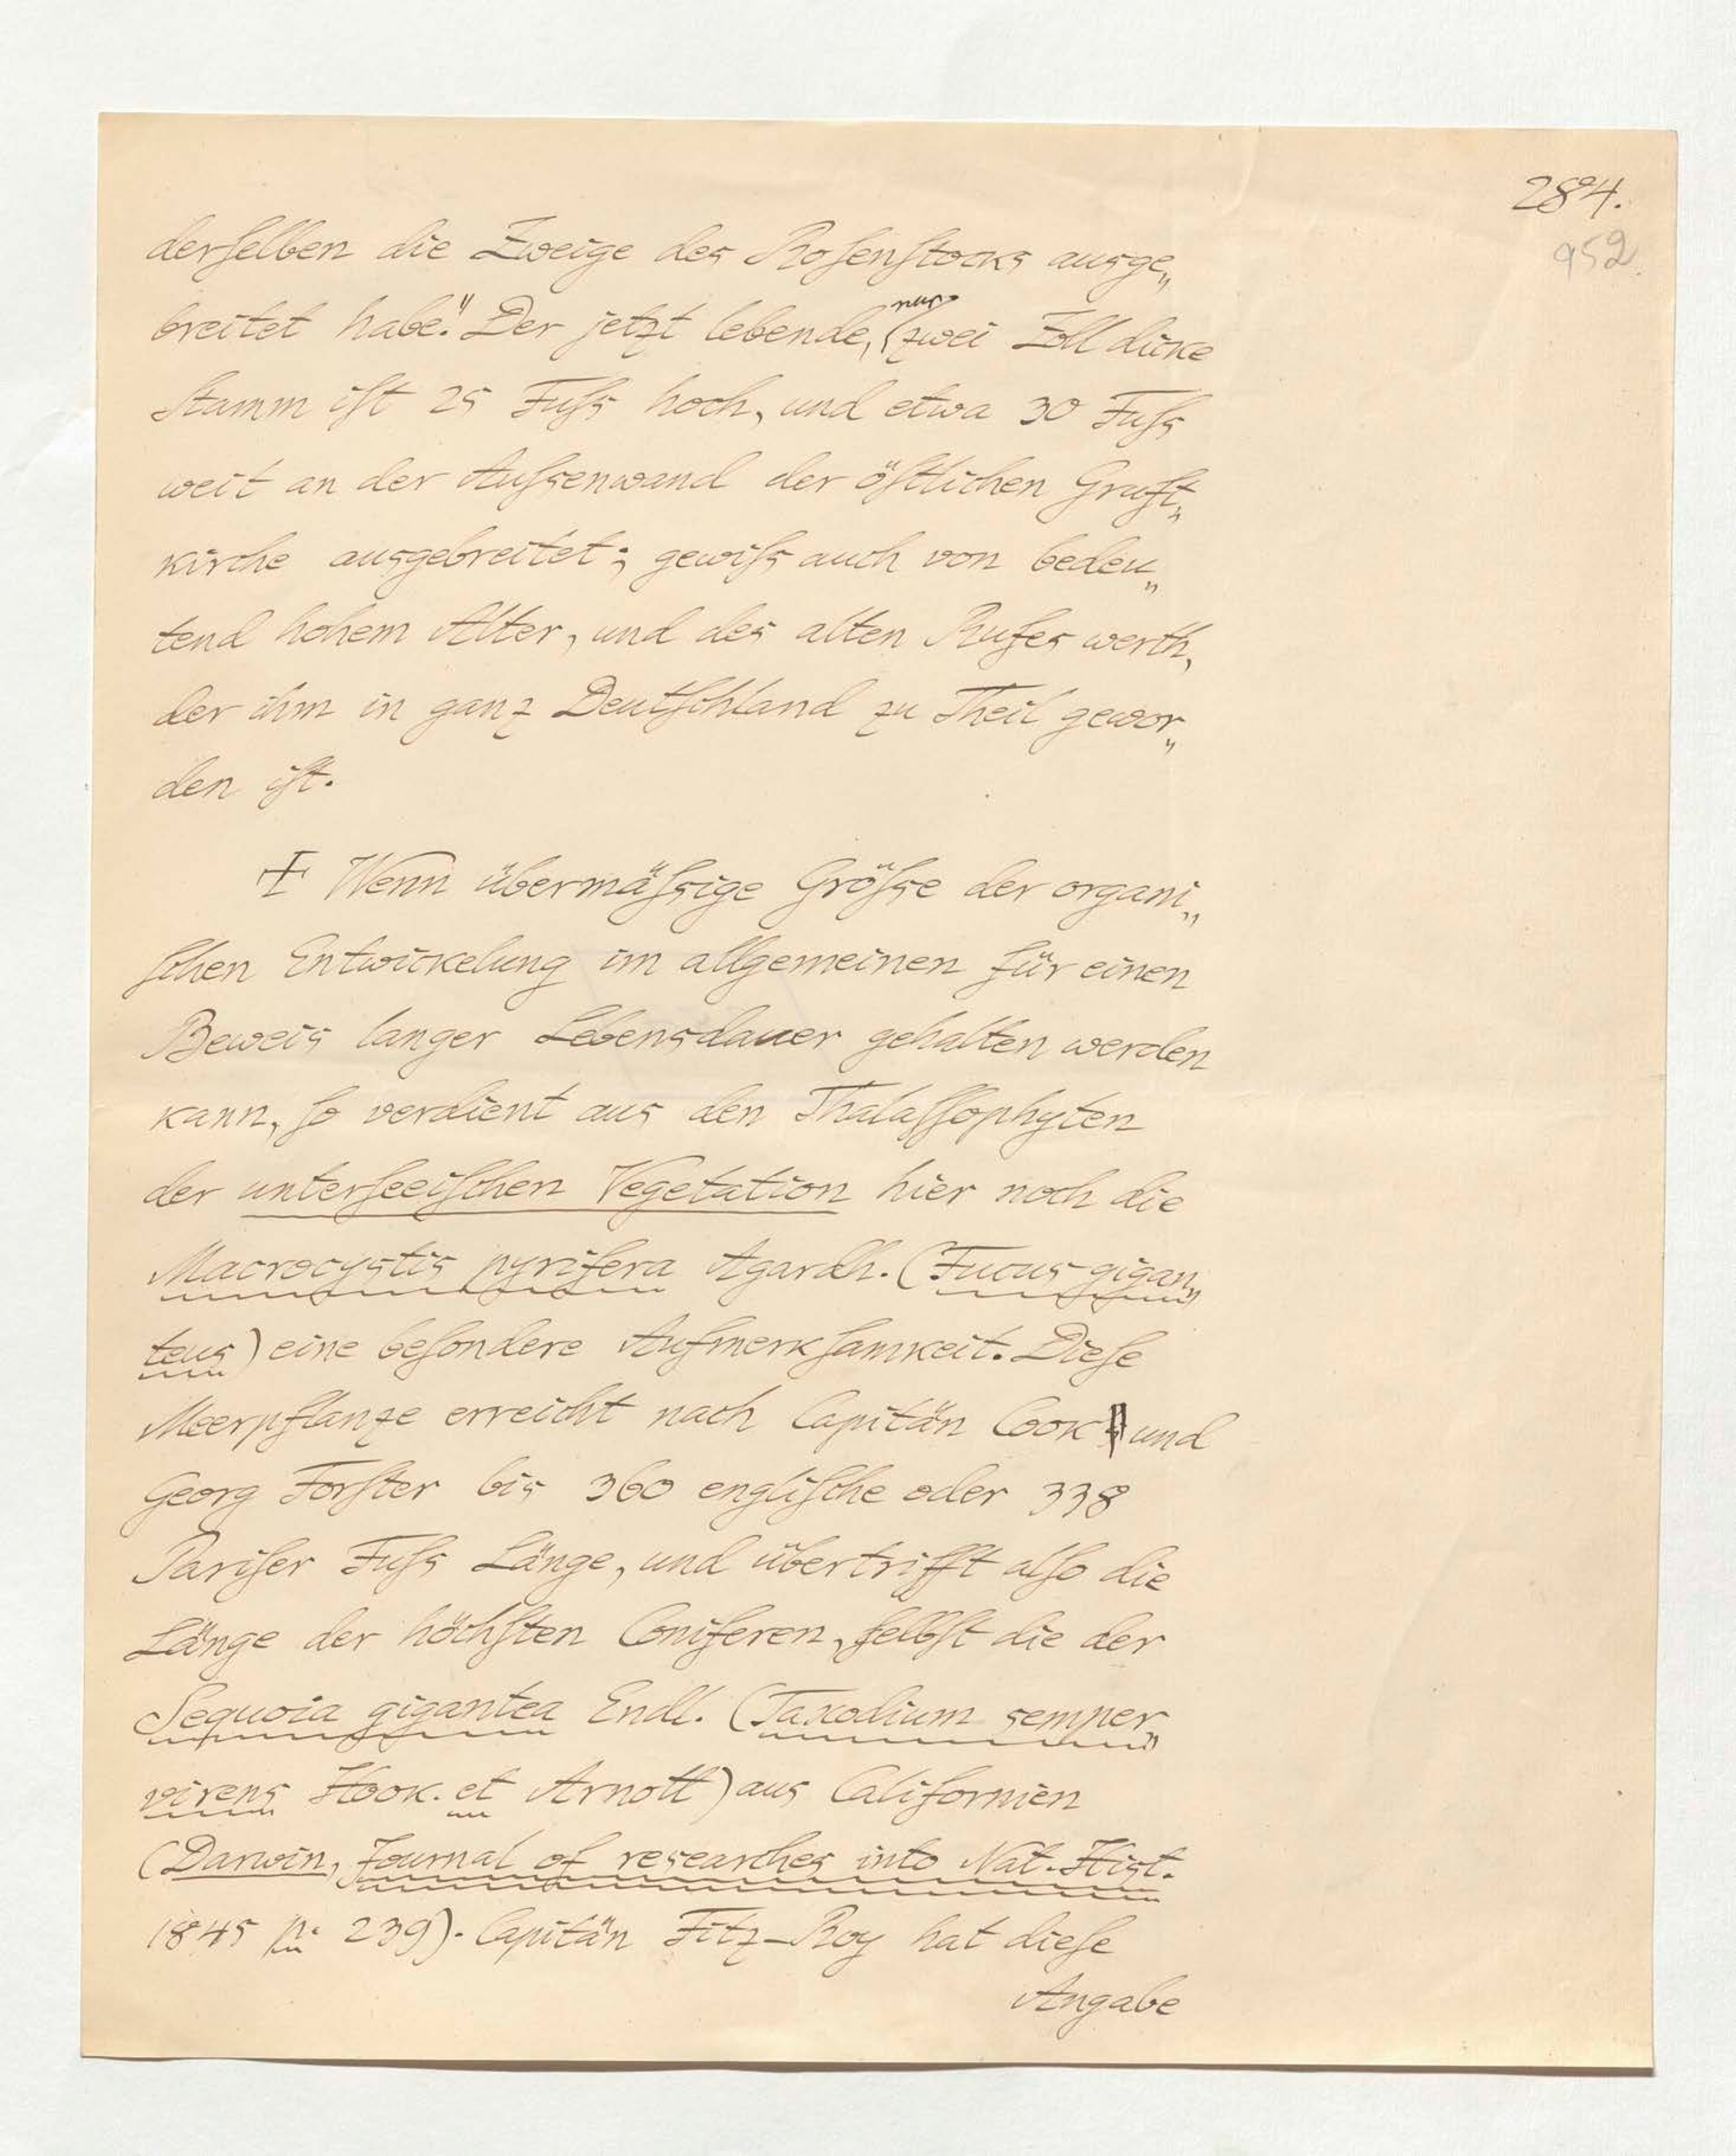 284.
952.
derſelben die Zweige des Roſenſtocks ausge„
breitet habe." Der jetzt lebende, nur zwei Zoll dicke
Stamm iſt 25 Fuſs hoch, und etwa 30 Fuſs
weit an der Auſsenwand der öſtlichen Gruft„
kirche ausgebreitet; gewiſs auch von bedeu„
tend hohem Alter, und des alten Rufes werth,
der ihm in ganz Deutſchland zu Theil gewor„
den iſt.
‡ Wenn übermäſsige Gröſse der organi„
ſchen Entwickelung im allgemeinen für einen
Beweis langer Lebensdauer gehalten werden
kann, ſo verdient aus den Thalaſſophyten
der unterſeeiſchen Vegetation hier noch die
Macrocystis pyrifera Agardh. (Fucus gigan„
teus) eine beſondere Aufmerkſamkeit. Dieſe
Meerpflanze erreicht nach Capitän Cook und
Georg Forſter bis 360 engliſche oder 338
Pariſer Fuſs Länge, und übertrifft alſo die
Länge der höchſten Coniferen, ſelbſt die der
Sequoia gigantea Endl. (Taxodium semper„
virens Hook. et Arnott) aus Californien
(Darwin, Journal of researches into Nat. Hist.
1845 p. 239). Capitän Fitz-Roy hat dieſe
Angabe